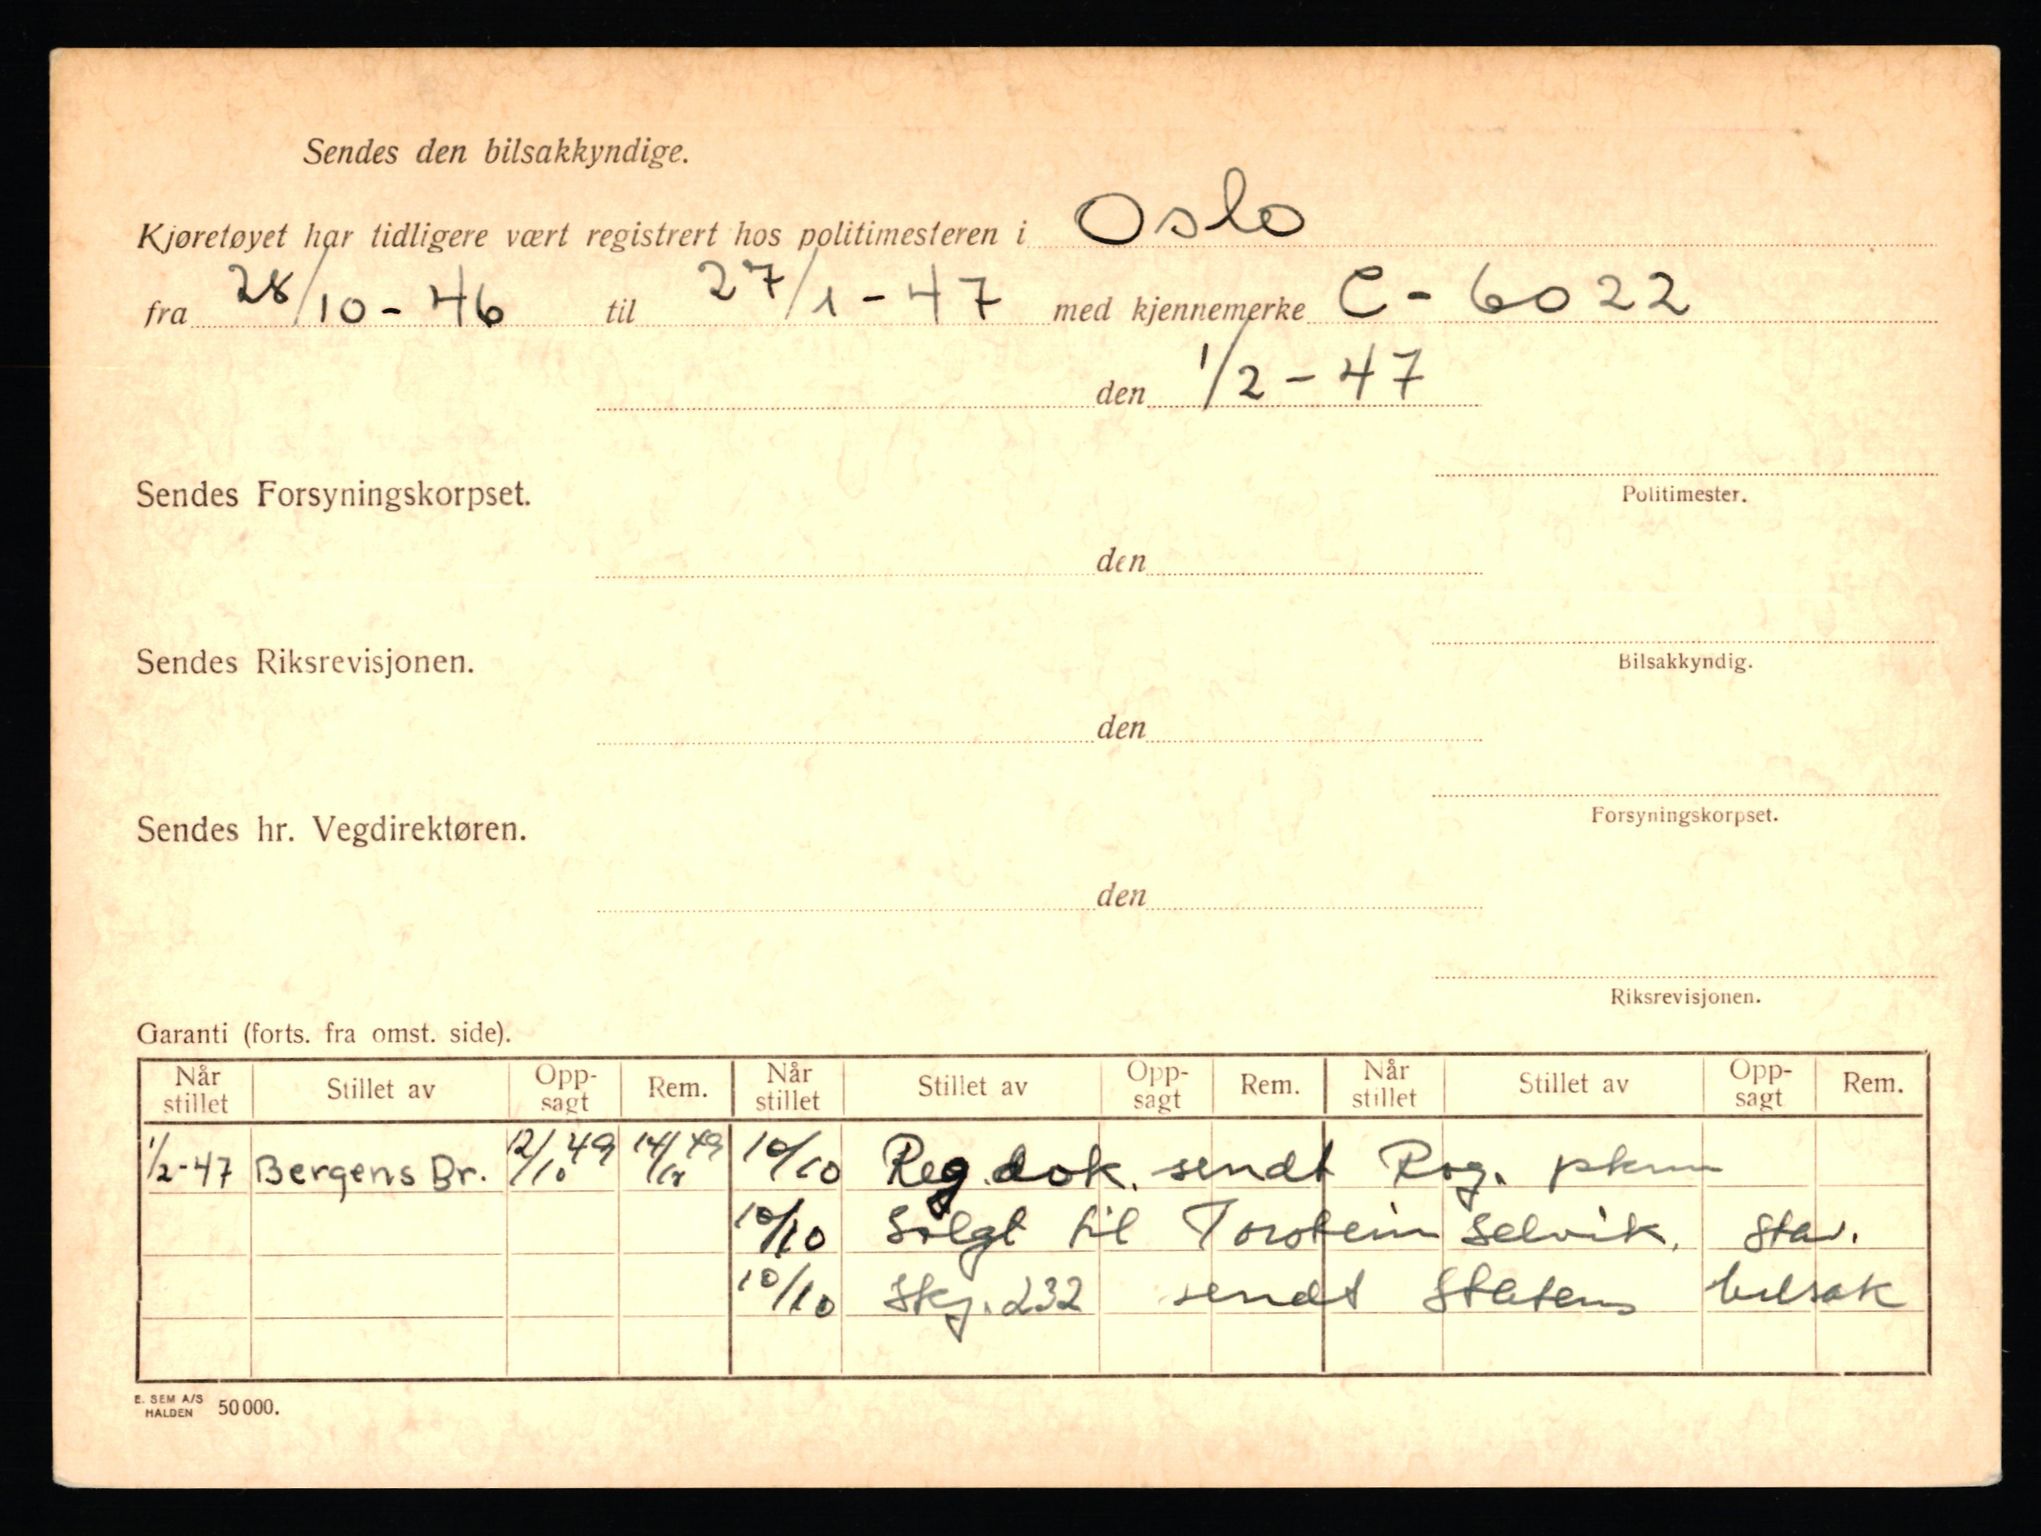 Sendes den bilsakkyndige.
Kjøretøyet har tidligere vært registrert hos politimesteren i Oslo
fra 28/10-46 til 27/1-47 med kjennemerke C-6022
den 1/2-47
Politimester.
Sendes Forsyningskorpset.
den
Bilsakkyndig.
Sendes Riksrevisjonen.
den
Forsyningskorpset.
Sendes hr. Vegdirektøren.
den
Riksrevisjonen.
Garanti (forts. fra omst. side).
Når stillet Stillet av Opp-sagt Rem. Når stillet Stillet av Opp-sagt Rem. Når stillet Stillet av Opp-sagt Rem.
1/2-47 Bergens Br. 12/10 49 10/10 Reg. dok. sendt Rog. pkm
10/10 Solgt til Torstein Selvik, Stav.
10/10 Skj. 232 sendt Statens bilsak
E. SEM A/S
HALDEN 50 000.